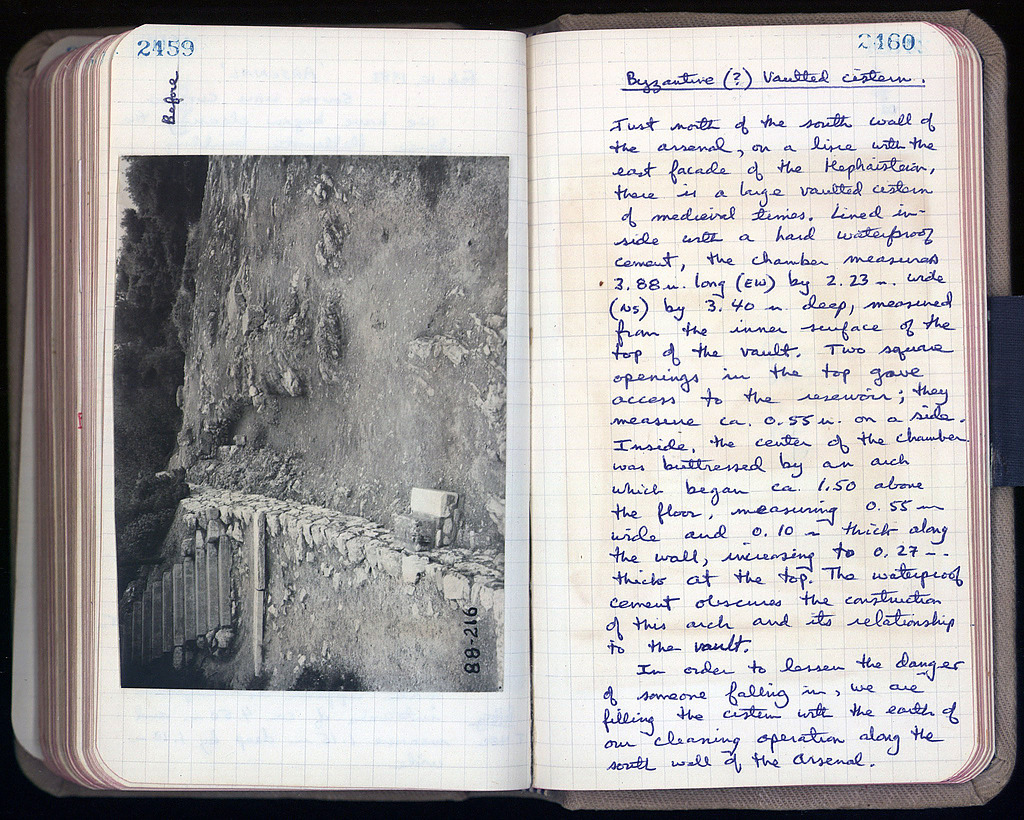 2459
Before
88-216
2460
Byzantine (?) Vaulted cistern.
Just north of the south wall of
the arsenal, on a line with the
east facade of the Hephaisteion,
there is a large vaulted cistern
of medieval times. Lined in-
side with a hard waterproof
cement, the chamber measures
3.88 m. long (EW) by 2.23 m. wide
(NS) by 3.40 m. deep, measured
from the inner surface of the
top of the vault. Two square
openings in the top gave
access to the reservoir; they
measure ca. 0.55 m. on a side.
Inside, the center of the chamber
was buttressed by an arch
which began ca. 1.50 above
the floor, measuring 0.55 m
wide and 0.10 m thick along
the wall, increasing to 0.27 m.
thick at the top. The waterproof
cement obscures the construction
of this arch and its relationship
to the vault.
In order to lessen the danger
of someone falling in, we are
filling the cistern with the earth of
our cleaning operation along the
south wall of the Arsenal.